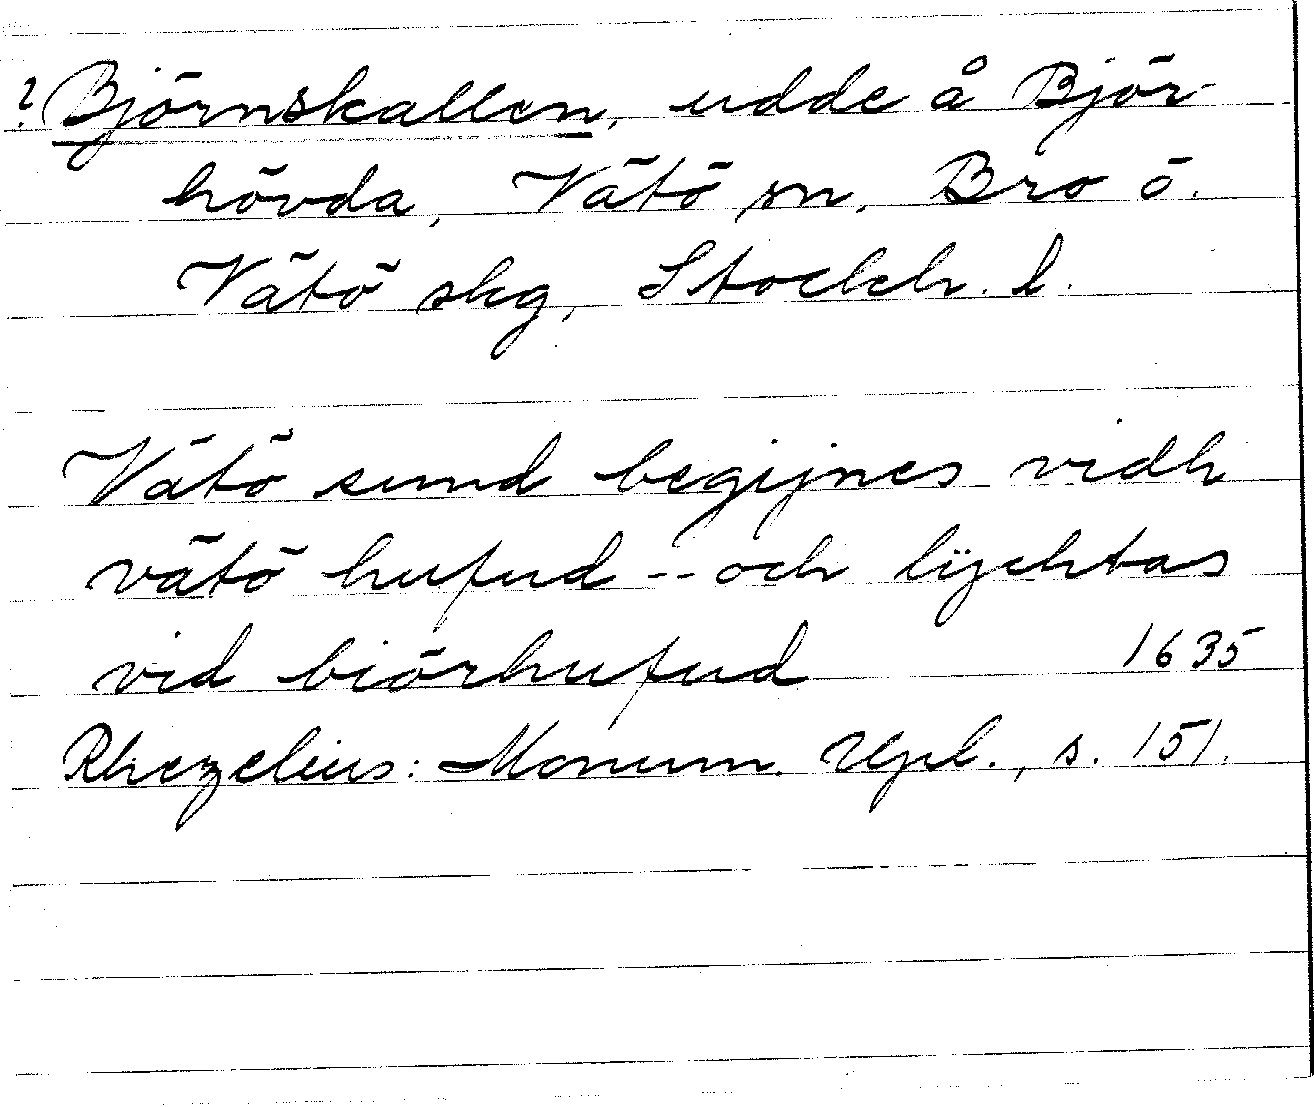 ? Björnskallen, udde å Björ-
hövda, Vätö sn, Bro o.
Vätö skg, Stockh. l.
Vätö sund begijnes vidh
vätö hufud -- och lÿchtas
vid biörhufud 1635
Rhezelius: Monum. Upl., s. 151.